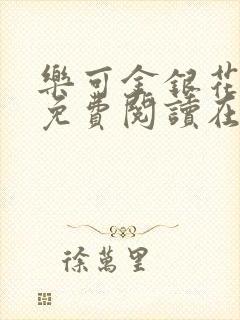 樂可金銀花
免費閱讀在
徐萬里